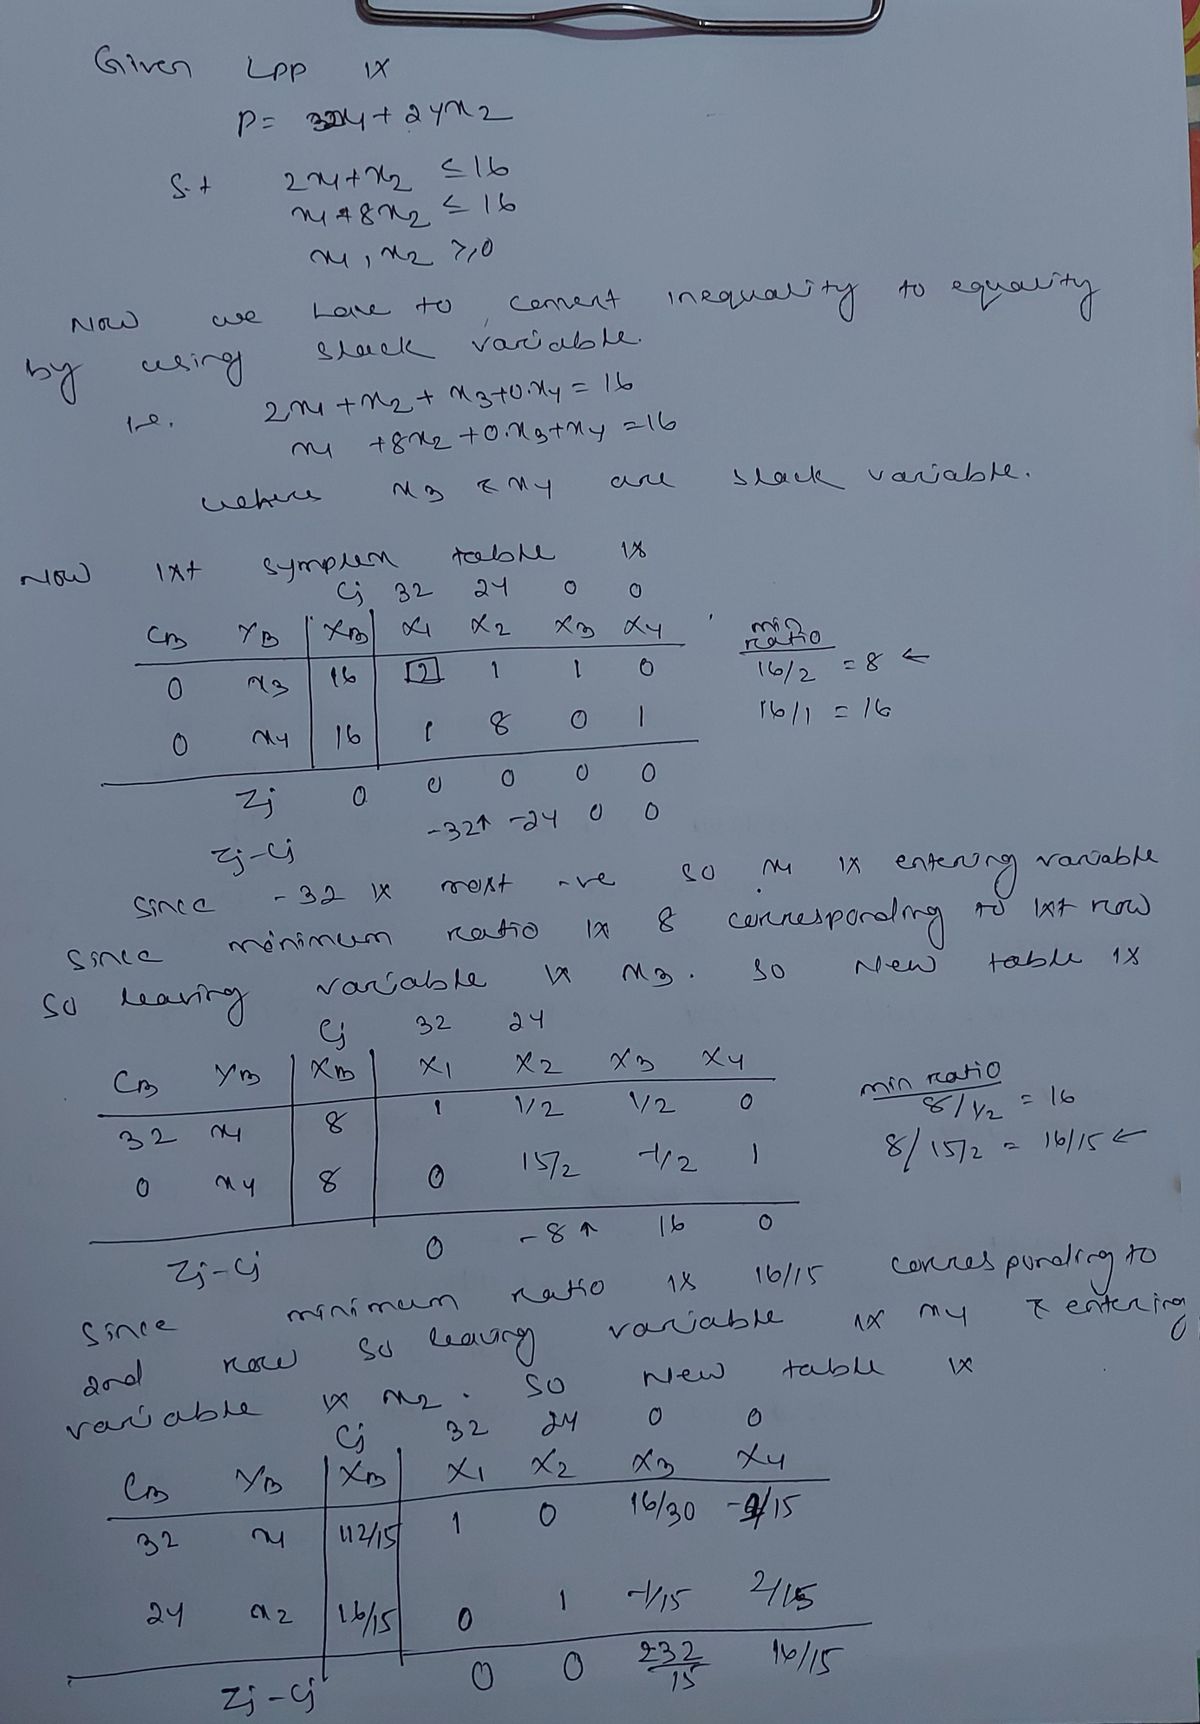 Given LPP is
P = 32x1 + 24x2
S.t 2x1 + x2 ≤ 16
x1 + 8x2 ≤ 16
x1, x2 ≥, 0
Now we have to convert inequality to equality
by using slack variable.
i.e. 2x1 + x2 + x3 + 0.x4 = 16
x1 + 8x2 + 0.x3 + x4 = 16
where x3 & x4 are slack variable.
Now 1st symplex table is
Cj 32 24 0 0
CB YB XB X1 X2 X3 X4 min ratio
0 x3 16 2 1 1 0 16/2 = 8 ←
0 x4 16 1 8 0 1 16/1 = 16
Zj 0 0 0 0 0
Zj-Cj -32↑ -24 0 0
Since -32 is most -ve so x1 is entering variable
Since minimum ratio is 8 corresponding to 1st row
so leaving variable is x3. So New table is
Cj 32 24
CB YB XB X1 X2 X3 X4 min ratio
32 x1 8 1 1/2 1/2 0 8/1/2 = 16
0 x4 8 0 15/2 -1/2 1 8/15/2 = 16/15 ←
Zj-Cj 0 -8↑ 16 0
Since minimum ratio is 16/15 corresponding to
2nd row so leaving variable is x4 & entering
variable is x2. So New table is
Cj 32 24 0 0
CB YB XB X1 X2 X3 X4
32 x1 112/15 1 0 16/30 -1/15
24 x2 16/15 0 1 -1/15 2/15
Zj-Cj 0 0 232/15 16/15